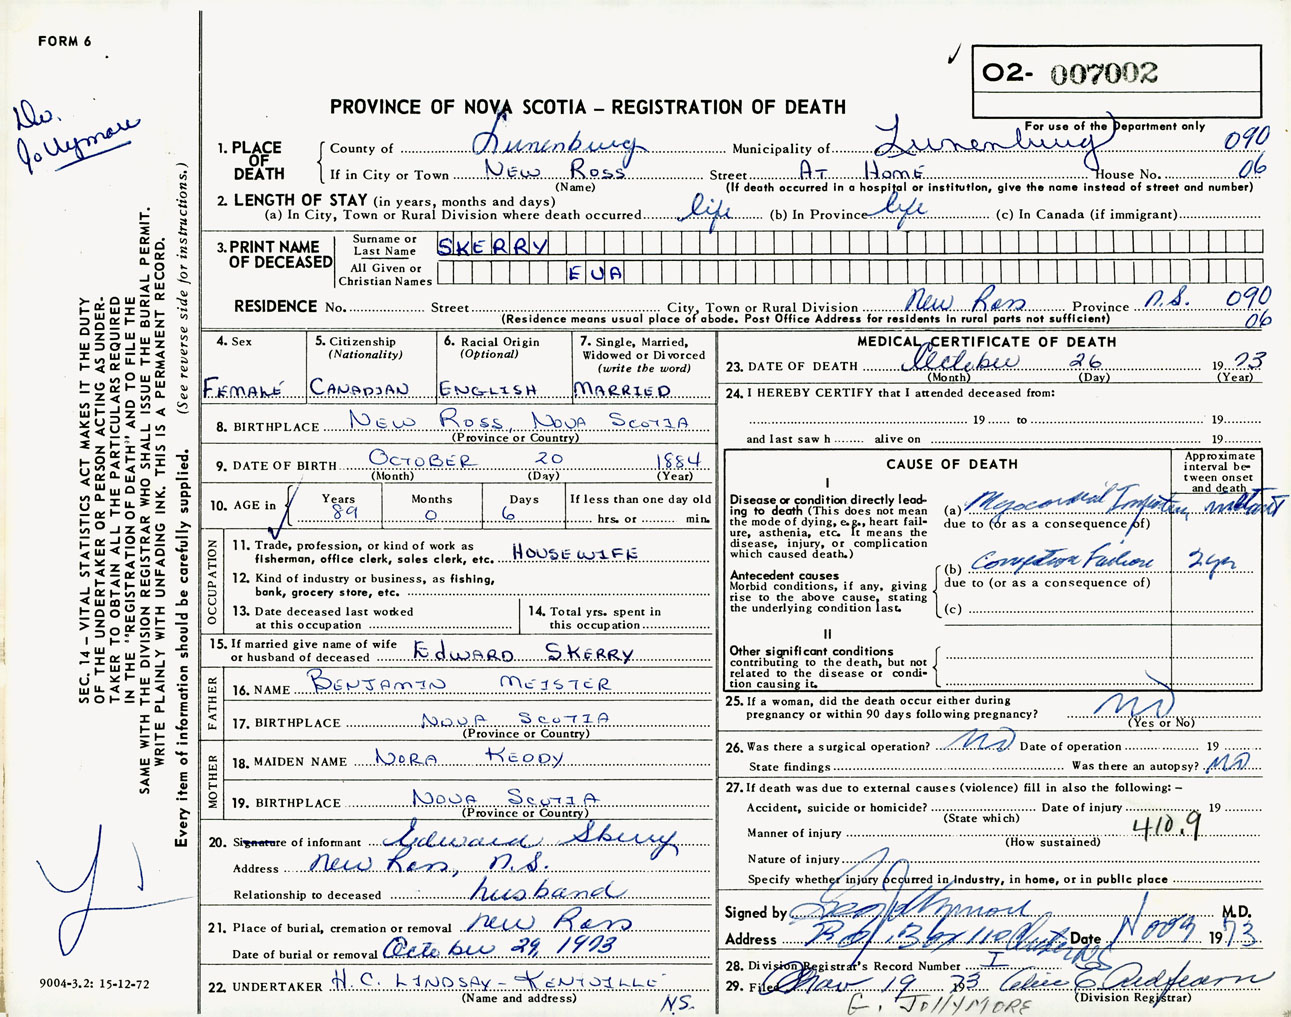 FORM 6
Dr.
Jollymore
O2- 007002
PROVINCE OF NOVA SCOTIA – REGISTRATION OF DEATH
For use of the Department only
1. PLACE OF DEATH
County of Lunenburg Municipality of Lunenburg 090
If in City or Town NEW ROSS Street AT HOME House No. 06
(Name) (If death occurred in a hospital or institution, give the name instead of street and number)
2. LENGTH OF STAY (in years, months and days)
(a) In City, Town or Rural Division where death occurred life (b) In Province life (c) In Canada (if immigrant)
3. PRINT NAME OF DECEASED
Surname or Last Name SKERRY
All Given or Christian Names EVA
RESIDENCE No. Street City, Town or Rural Division New Ross Province N.S. 090
(Residence means usual place of abode. Post Office Address for residents in rural parts not sufficient) 06
4. Sex
FEMALE
5. Citizenship
(Nationality)
CANADIAN
6. Racial Origin
(Optional)
ENGLISH
7. Single, Married,
Widowed or Divorced
(write the word)
MARRIED
8. BIRTHPLACE NEW ROSS, NOVA SCOTIA
(Province or Country)
9. DATE OF BIRTH OCTOBER 20 1884
(Month) (Day) (Year)
10. AGE in Years Months Days If less than one day old
89 0 6 hrs. or min.
OCCUPATION
11. Trade, profession, or kind of work as
fisherman, office clerk, sales clerk, etc. HOUSEWIFE
12. Kind of industry or business, as fishing,
bank, grocery store, etc.
13. Date deceased last worked
at this occupation
14. Total yrs. spent in
this occupation
15. If married give name of wife
or husband of deceased EDWARD SKERRY
FATHER
16. NAME BENJAMIN MEISTER
17. BIRTHPLACE NOVA SCOTIA
(Province or Country)
MOTHER
18. MAIDEN NAME NORA KEDDY
19. BIRTHPLACE NOVA SCOTIA
(Province or Country)
20. Signature of informant Edward Skerry
Address New Ross, N.S.
Relationship to deceased husband
21. Place of burial, cremation or removal New Ross
Date of burial or removal October 29, 1973
22. UNDERTAKER H. C. LINDSAY - KENTVILLE
(Name and address) N.S.
MEDICAL CERTIFICATE OF DEATH
23. DATE OF DEATH October 26 1973
(Month) (Day) (Year)
24. I HEREBY CERTIFY that I attended deceased from:
19 to 19
and last saw h alive on 19
CAUSE OF DEATH
Approximate
interval be-
tween onset
and death
I
Disease or condition directly lead-
ing to death (This does not mean
the mode of dying, e.g., heart fail-
ure, asthenia, etc. It means the
disease, injury, or complication
which caused death.)
(a) Myocardial
due to (or as a consequence of)
Antecedent causes
Morbid conditions, if any, giving
rise to the above cause, stating
the underlying condition last.
(b) Failure 2 yr
due to (or as a consequence of)
(c)
II
Other significant conditions
contributing to the death, but not
related to the disease or condi-
tion causing it.
25. If a woman, did the death occur either during
pregnancy or within 90 days following pregnancy? No
(Yes or No)
26. Was there a surgical operation? No Date of operation 19
State findings Was there an autopsy? No
27. If death was due to external causes (violence) fill in also the following: –
Accident, suicide or homicide? Date of injury 19
(State which)
Manner of injury 410.9
(How sustained)
Nature of injury
Specify whether injury occurred in industry, in home, or in public place
Signed by Geo Jollymore M.D.
Address P.O. Box 110 Chester NS Date 1973
28. Division Registrar's Record Number I
29. Filed Nov 19 1973
(Division Registrar)
G. JOLLYMORE
SEC. 14 – VITAL STATISTICS ACT MAKES IT THE DUTY
OF THE UNDERTAKER OR PERSON ACTING AS UNDER-
TAKER TO OBTAIN ALL THE PARTICULARS REQUIRED
IN THE "REGISTRATION OF DEATH" AND TO FILE THE
SAME WITH THE DIVISION REGISTRAR WHO SHALL ISSUE THE BURIAL PERMIT.
WRITE PLAINLY WITH UNFADING INK. THIS IS A PERMANENT RECORD.
Every item of information should be carefully supplied. (See reverse side for instructions.)
9004-3.2: 15-12-72